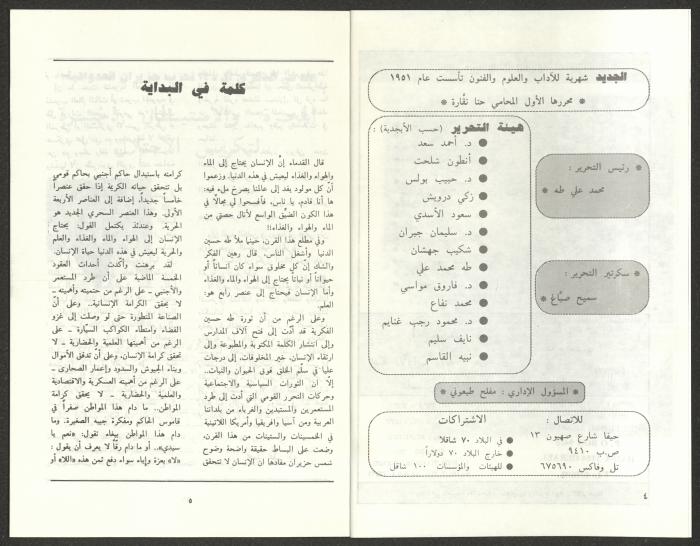 الجديد شهرية للآداب والعلوم والفنون تأسست عام ١٩٥١
* محررها الأول المحامي حنا نقّارة *
هيئة التحرير (حسب الأبجدية) :
د. أحمد سعد
أنطون شلحت
د. حبيب بولس
زكي درويش
سعود الأسدي
د. سليمان جبران
شكيب جهشان
طه محمد علي
د. فاروق مواسي
محمد نفاع
د. محمود رجب غنايم
نايف سليم
نبيه القاسم
* رئيس التحرير :
محمد علي طه *
* سكرتير التحرير :
سميح صبّاغ *
* المسؤول الإداري : مفلح طبعوني *
للاتصال :
حيفا شارع صهيون ١٣
ص.ب ٩٤١٠
تل وفاكس ٦٧٥٦٩٠
الاشتراكات
* في البلاد ٧٠ شاقلا
* خارج البلاد ٧٠ دولاراً
* للهيئات والمؤسسات ١٠٠ شاقل
٤
كلمة في البداية
قال القدماء إنّ الإنسان يحتاج إلى الماء
والهواء والغذاء ليعيش في هذه الدنيا. وزعموا
أن كل مولود يفد إلى عالمنا يصرخ ملء فيه:
ها أنا قادم، يا ناس، فأفسحوا لي مجالاً في
هذا الكون الضيّق الواسع لأنال حصتي من
الماء والهواء والغذاء!!
وفي مطلع هذا القرن، حينما ملأ طه حسين
الدنيا وأشغل الناس، قال رهين الفكر
والشك إنّ كل مخلوق سواء كان انساناً أو
حيوانا أو نباتاً يحتاج إلى الهواء والماء والغذاء،
وأما الإنسان فيحتاج إلى عنصر رابع هو:
العلم.
وعلى الرغم من أن ثورة طه حسين
الفكرية قد أدّت إلى فتح آلاف المدارس
وإلى انتشار الكلمة المكتوبة والمطبوعة وإلى
ارتقاء الإنسان، خير المخلوقات، إلى درجات
عليا في سلّم الخلق فوق الحيوان والنبات..
إلّا أن الثورات السياسية والاجتماعية
وحركات التحرر القومي التي أدت إلى طرد
المستعمرين والمستبدين والغرباء من بلداننا
العربية ومن آسيا وافريقيا وأمريكا اللاتينية
في الخمسينات والستينات من هذا القرن،
وضعت على البساط حقيقة واضحة وضوح
شمس حزيران مفادها ان الإنسان لا تتحقق
كرامته باستبدال حاكم أجنبي بحاكم قومي
بل تتحقق حياته الكريمة إذا حقق عنصراً
خامساً جديداً، إضافة إلى العناصر الأربعة
الأولى. وهذا العنصر السحري الجديد هو
الحرية. وعندئذ يكتمل القول: يحتاج
الإنسان إلى الهواء والماء والغذاء والعلم
والحرية ليعيش في هذه الدنيا حياة الإنسان.
لقد برهنت وأكّدت أحداث العقود
الخمسة الماضية على أن طرد المستعمر
والأجنبي ـ على الرغم من حتميته وأهميته ـ
لا يحقق الكرامة الإنسانية.. وعلى أنّ
الصناعة المتطورة حتى لو وصلت إلى غزو
الفضاء وامتطاء الكواكب السيّارة ـ على
الرغم من أهميتها العلمية والحضارية ـ لا
تحقق كرامة الإنسان، وعلى أن تدفق الأموال
وبناء الجيوش والسدود وإعمار الصحارى ـ
على الرغم من أهميته العسكرية والاقتصادية
والعلمية والحضارية ـ لا يحقق كرامة
المواطن.. ما دام هذا المواطن صفراً في
قاموس الحاكم ومفكرة جيبه الصغيرة. وما
دام هذا المواطن ببغاء تقول: «نعم يا
سيدي».. أو ما دام رقّاً لا يعرف أن يقول :
«لا» بعزة وإباء سواء دفع ثمن هذه «اللا» أو
٥